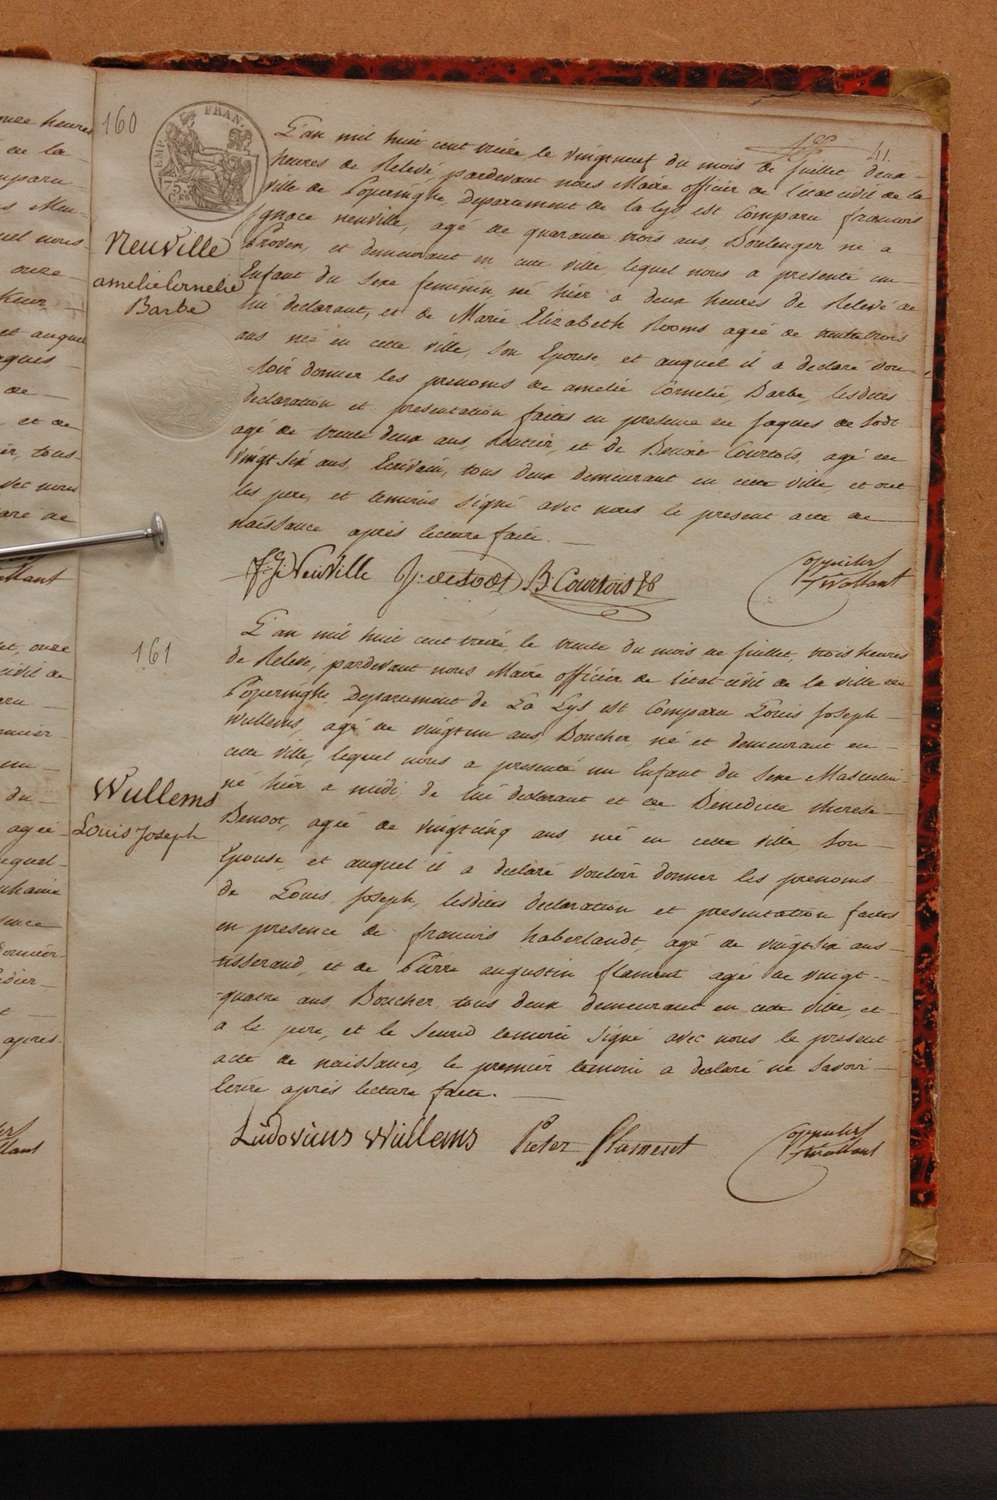 160
EMP. FRAN.
75 C.
41.
L'an mil huit cent treize le vingtneuf du mois de juillet deux
heures de Relevé pardevant nous Maire officier de l'etat civil de la
ville de Poperinghe, Departement de la Lys est Comparu francois
Ignace neuville, agé de quarante trois ans, Boulenger né a
Proven, et demeurant en cette ville, lequel nous a presenté un
Enfant du Sexe feminin, né hier a deux heures de Relevé de
lui declarant, et de Marie Elizabeth Rooms agée de trentetrois
ans née en cette ville, Son Epouse, et auquel il a declaré vou-
-loir donner les prenoms de amelie Cornelie, Barbe, lesdites
declaration et presentation faites en presence de Jaques de Sodt
agé de trente deux ans, Rentier, et de Benoit Courtois, agé de
vingt Six ans, Ecrivain, tous deux demeurant en cette ville et ont
les pere, et temoins Signé avec nous le present acte de
naissance après lecture faite. —
Neuville
amelie Cornelie
Barbe
F: J: Neuville J: de Sodt B: Courtois
161
L'an mil huit cent treize, le trente du mois de juillet, trois heures
de Relevé, pardevant nous Maire officier de l'etat civil de la ville de
Poperinghe, Departement de La Lys est Comparu Louis Joseph
Wullems, agé de vingtun ans, Boucher né et demeurant en
cette ville, lequel nous a presenté un Enfant du Sexe Masculin
né hier a midi de lui declarant et de Benedicte therese
Benoot, agée de vingtcinq ans née en cette ville Son
Epouse, et auquel il a declaré vouloir donner les prenoms
de Louis, Joseph, lesdites declaration et presentation faites
en presence de francois haberlandt, agé de vingtSix ans
tisserand, et de Pierre augustin flament agé de vingt-
-quatre ans, Boucher, tous deux demeurant en cette ville, et
a le pere, et le Second temoin Signé avec nous le present
acte de naissance, le premier temoin a declaré ne Savoir
Ecrire après lecture faite. —
Wullems
Louis Joseph
Ludovicus Wullems Pieter Flament